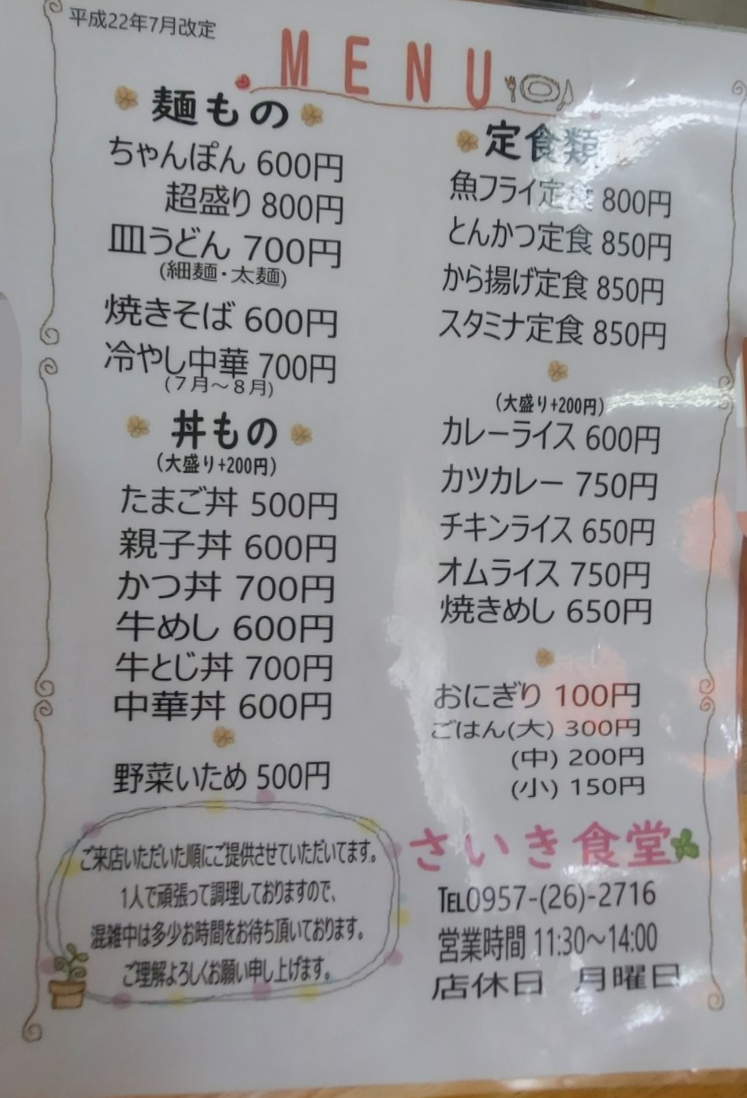 平成22年7月改定
MENU
麺もの
ちゃんぽん 600円
超盛り 800円
皿うどん 700円
(細麺・太麺)
焼きそば 600円
冷やし中華 700円
(7月～8月)
丼もの
(大盛り+200円)
たまご丼 500円
親子丼 600円
かつ丼 700円
牛めし 600円
牛とじ丼 700円
中華丼 600円
野菜いため 500円
ご来店いただいた順にご提供させていただいてます。
1人で頑張って調理しておりますので、
混雑中は多少お時間をお待ち頂いております。
ご理解よろしくお願い申し上げます。
定食類
魚フライ定食 800円
とんかつ定食 850円
から揚げ定食 850円
スタミナ定食 850円
(大盛り+200円)
カレーライス 600円
カツカレー 750円
チキンライス 650円
オムライス 750円
焼きめし 650円
おにぎり 100円
ごはん(大) 300円
(中) 200円
(小) 150円
さいき食堂
℡0957-(26)-2716
営業時間 11:30～14:00
店休日 月曜日